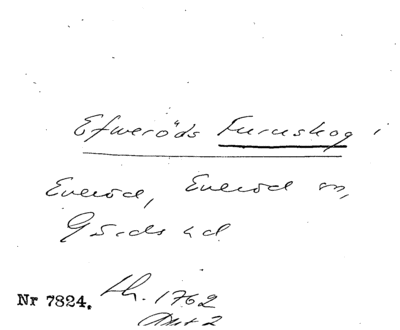 Efweröds Furuskog i
Everöd, Everöd sn,
Gärds hd
Nr 7824. th. 1762
Akt 2